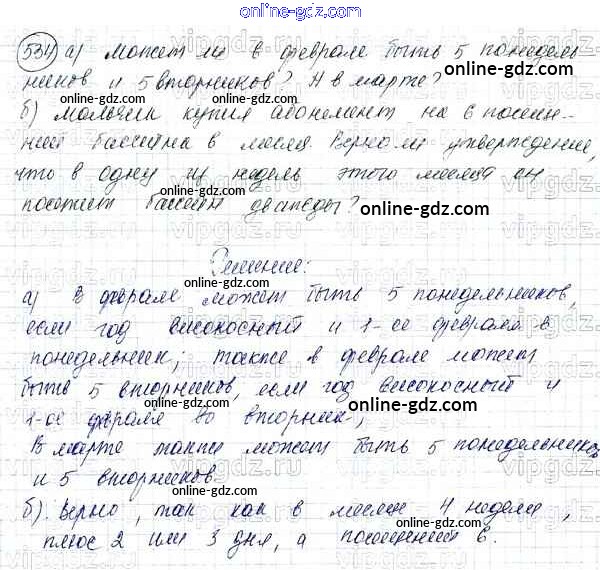 online-gdz.com
534 а) может ли в феврале быть 5 понедель-
online-gdz.com
ников и 5 вторников? А в марте?
online-gdz.com
б) мальчик купил абонемент на 6 посеще-
ний бассейна в месяц. Верно ли утверждение,
online-gdz.com
что в одну из недель этого месяца он
посетит бассейн дважды?
online-gdz.com
Решение:
online-gdz.com
а) В феврале может быть 5 понедельников,
если год високосный и 1-ое февраля в
online-gdz.com
понедельник; также в феврале может
быть 5 вторников, если год високосный и
online-gdz.com
1-ое февраля во вторник;
В марте также может быть 5 понедельников
и 5 вторников.
online-gdz.com
б). Верно, так как в месяце 4 недели,
online-gdz.com
плюс 2 или 3 дня, а посещений 6.